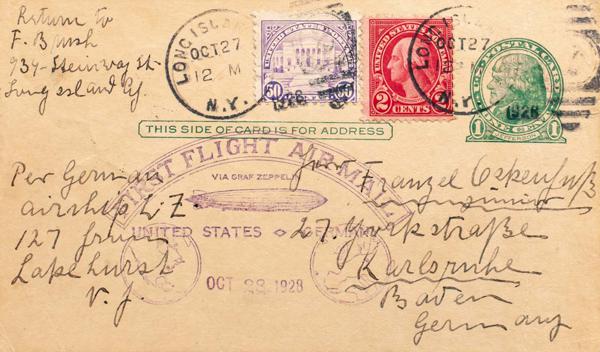 Return to
F. Bush
937 Steinway St.
Long Island Cy.
LONG ISLAND
OCT 27
12 M
N.Y.
1928
UNITED STATES POSTAGE
50 50
UNITED STATES POSTAGE
2 2
CENTS
LONG ISLAND
OCT 27
N.Y.
1928
U.S. POSTAL CARD
1 1
ONE CENT
JEFFERSON
THIS SIDE OF CARD IS FOR ADDRESS
FIRST FLIGHT AIR MAIL
VIA GRAF ZEPPELIN
UNITED STATES GERMANY
OCT 28 1928
Per German
airship L.Z.
127 from
Lakehurst
N.J.
Herr Franzel
junior
27. Yorkstraße
Karlsruhe
Baden
Germany